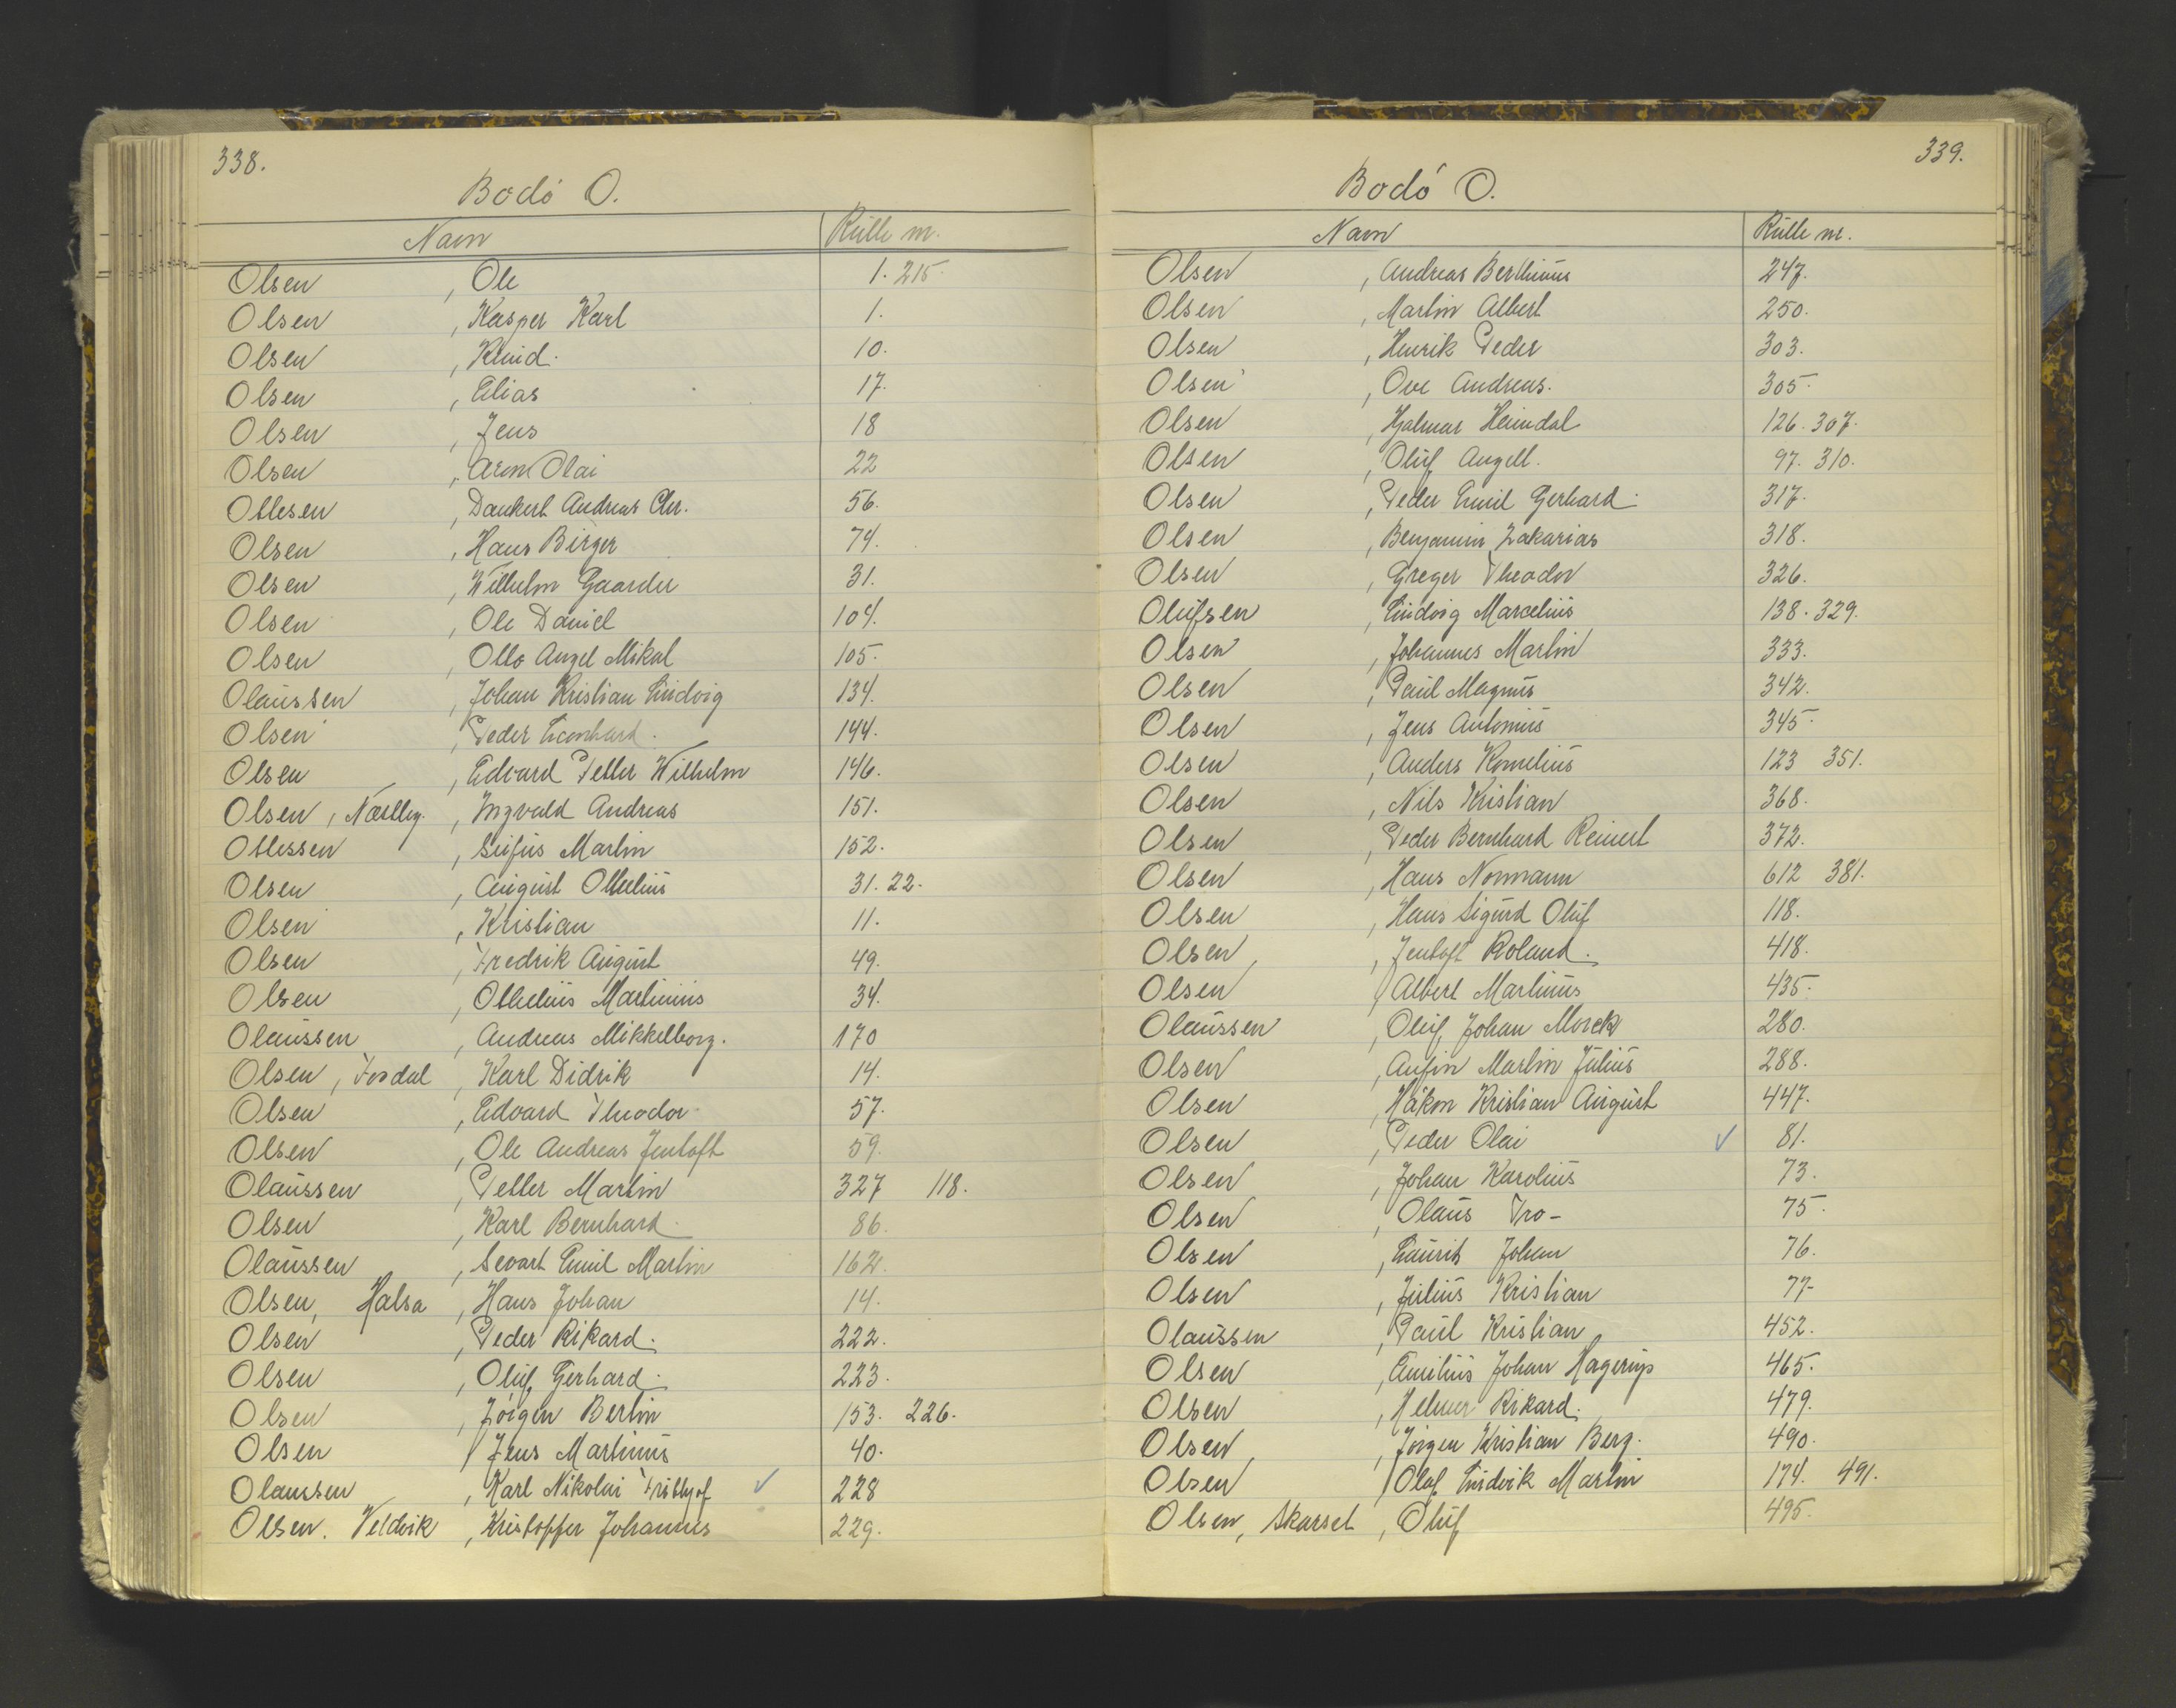 338.
Bodó O.
Navn Rulle nr.
Olsen , Ole 1. 215.
Olsen , Kasper Karl 1.
Olsen , Knud. 10.
Olsen , Elias 17.
Olsen , Jens 18
Olsen , Aron Olai 22
Ottesen , Dankert Andreas Chr. 56.
Olsen , Hans Birger 74.
Olsen , Wilhelm Gaarder 31.
Olsen , Ole Daniel 104.
Olsen , Otto Angel Mikal 105.
Olaussen , Johan Kristian Ludvig 134.
Olsen , Peder Leonhard. 144.
Olsen , Edvard Petter Wilhelm 146.
Olsen, Næstby. , Ingvald Andreas 151.
Ottessen , Sirius Martin 152.
Olsen , August Othelius 31. 22.
Olsen , Kristian 11.
Olsen , Fredrik August 49.
Olsen , Othelius Martinius 34.
Olaussen , Andreas Mikkelborg. 170
Olsen, Fosdal , Karl Didrik 14.
Olsen , Edvard Theodor 57.
Olsen , Ole Andreas Jentoft 59.
Olaussen , Petter Martin 327 118.
Olsen , Karl Bernhard. 86.
Olaussen , Sevart Emil Martin 162.
Olsen, Halsa , Hans Johan 14.
Olsen , Peder Rikard. 222.
Olsen , Oluf Gerhard. 223.
Olsen , Jörgen Bertin 153. 226.
Olsen , Jens Martinus 40.
Olaussen , Karl Nikolai Frithjof ✓ 228
Olsen. Veldvik , Kristoffer Johannes 229.
339.
Bodó O.
Navn Rulle nr.
Olsen , Andreas Berthinus 247.
Olsen , Martin Albert 250.
Olsen , Henrik Peder 303.
Olsen , Ove Andreas. 305.
Olsen , Hjalmar Heimdal 126. 307.
Olsen , Oluf Angell. 97. 310.
Olsen , Peder Emil Gerhard. 317.
Olsen , Benjamin Zakarias 318.
Olsen , Greger Theodor 326.
Olufsen , Ludvig Marcelius 138. 329.
Olsen , Johannes Martin 333.
Olsen , Paul Magnus 342.
Olsen , Jens Antonius 345.
Olsen , Anders Kornelius 123 351.
Olsen , Nils Kristian 368.
Olsen , Peder Bernhard Reinert 372.
Olsen , Hans Normann 612 381.
Olsen , Hans Sigurd Oluf 118.
Olsen , Jentoft Roland. 418.
Olsen , Albert Martinus 435.
Olaussen , Oluf Johan Morck 280.
Olsen , Anfin Martin Julius 288.
Olsen , Håkon Kristian August 447.
Olsen , Peder Olai ✓ 81.
Olsen , Johan Karolius 73.
Olsen , Olaus Tro- 75.
Olsen , Laurits Johan 76.
Olsen , Julius Kristian 77-
Olaussen , Paul Kristian 452.
Olsen , Emilius Johan Hagerup 465.
Olsen , Helmer Rikard. 479.
Olsen , Jörgen Kristian Berg. 490.
Olsen , Olaf Ludvik Martin 174. 491.
Olsen, Skarset , Oluf 495.